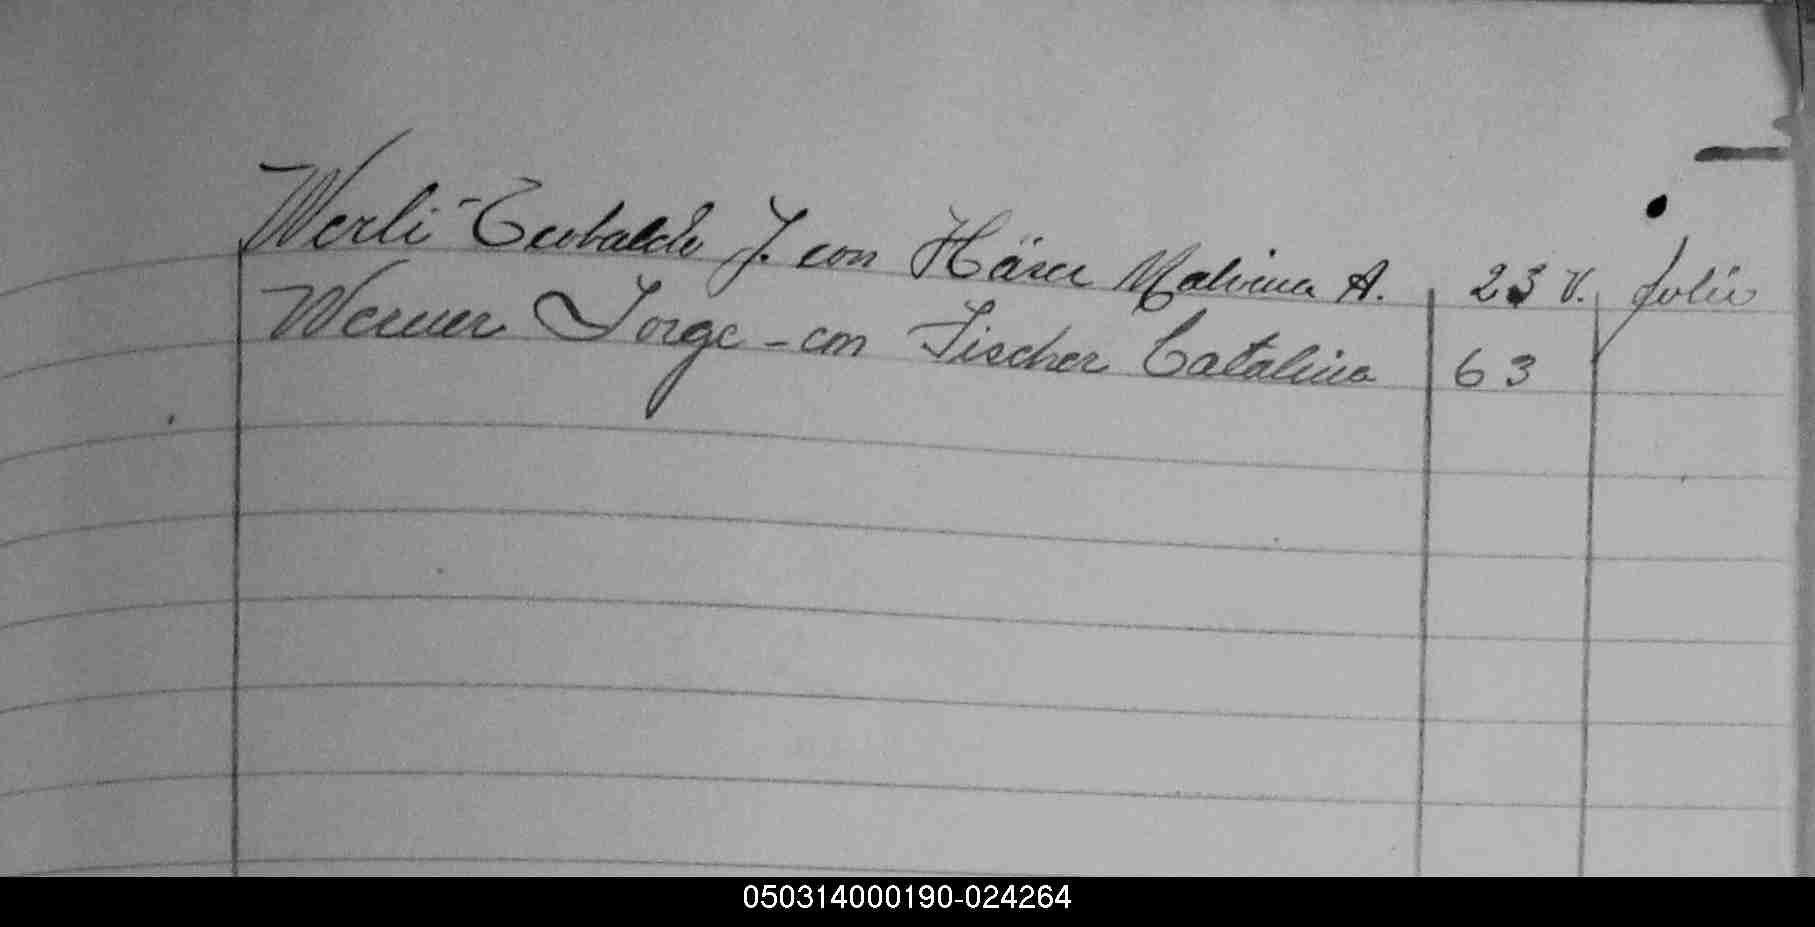 Werli - Teobaldo J. con Härer Malvina A. 23 V. folio
Werner Jorge - con Fischer Catalina 63
050314000190-024264